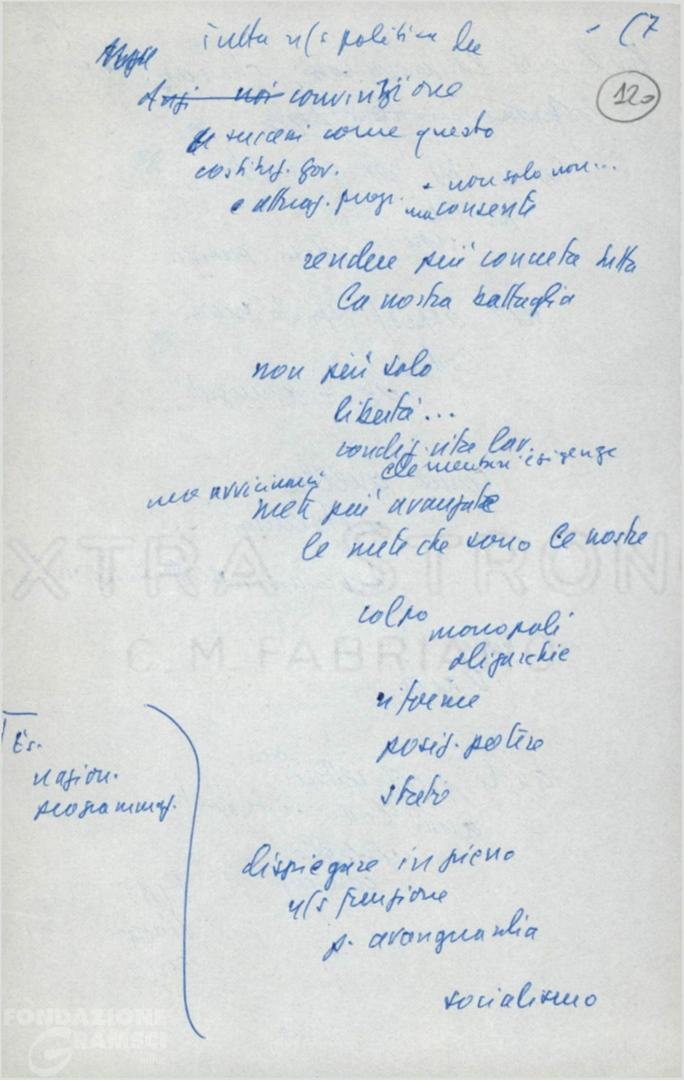 tutta n/s politica
(7
12
noi convinzione
successi come questo
costituz. gov.
e attuaz. progr. non solo non...
ma consente
rendere più concreta tutta
la nostra battaglia
non più solo
libertà...
condiz. vita lav.
elementari esigenze
ma avvicinarci
mete più avanzate
le mete che sono le nostre
XTRA STRON
colpo monopoli
C. M. FABRIANO
oligarchie
riforme
posiz. potere
stato
Es.
nazion.
programmaz.
dispiegare in pieno
n/s funzione
p. avanguardia
socialismo
FONDAZIONE
GRAMSCI